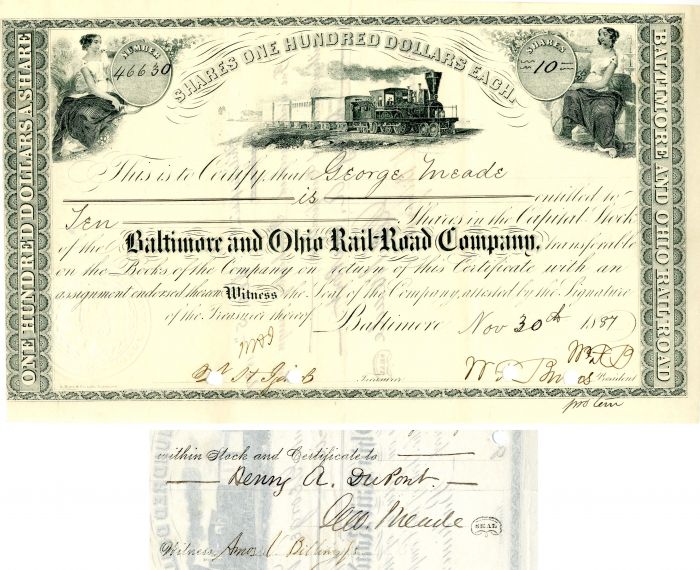 NUMBER
46630
SHARES ONE HUNDRED DOLLARS EACH.
SHARES
10
ONE HUNDRED DOLLARS A SHARE
BALTIMORE AND OHIO RAIL-ROAD
This is to Certify, that George Meade
is entitled to
Ten Shares in the Capital Stock
of the Baltimore and Ohio Rail-Road Company, transferable
on the Books of the Company on return of this Certificate with an
assignment endorsed thereon Witness the Seal of the Company, attested by the Signature
of the Treasurer thereof. Baltimore Nov 30th 1887
Treasurer President
pro tem
within Stock and Certificate to
Henry A. DuPont.
Geo. Meade
SEAL
Witness, Amos